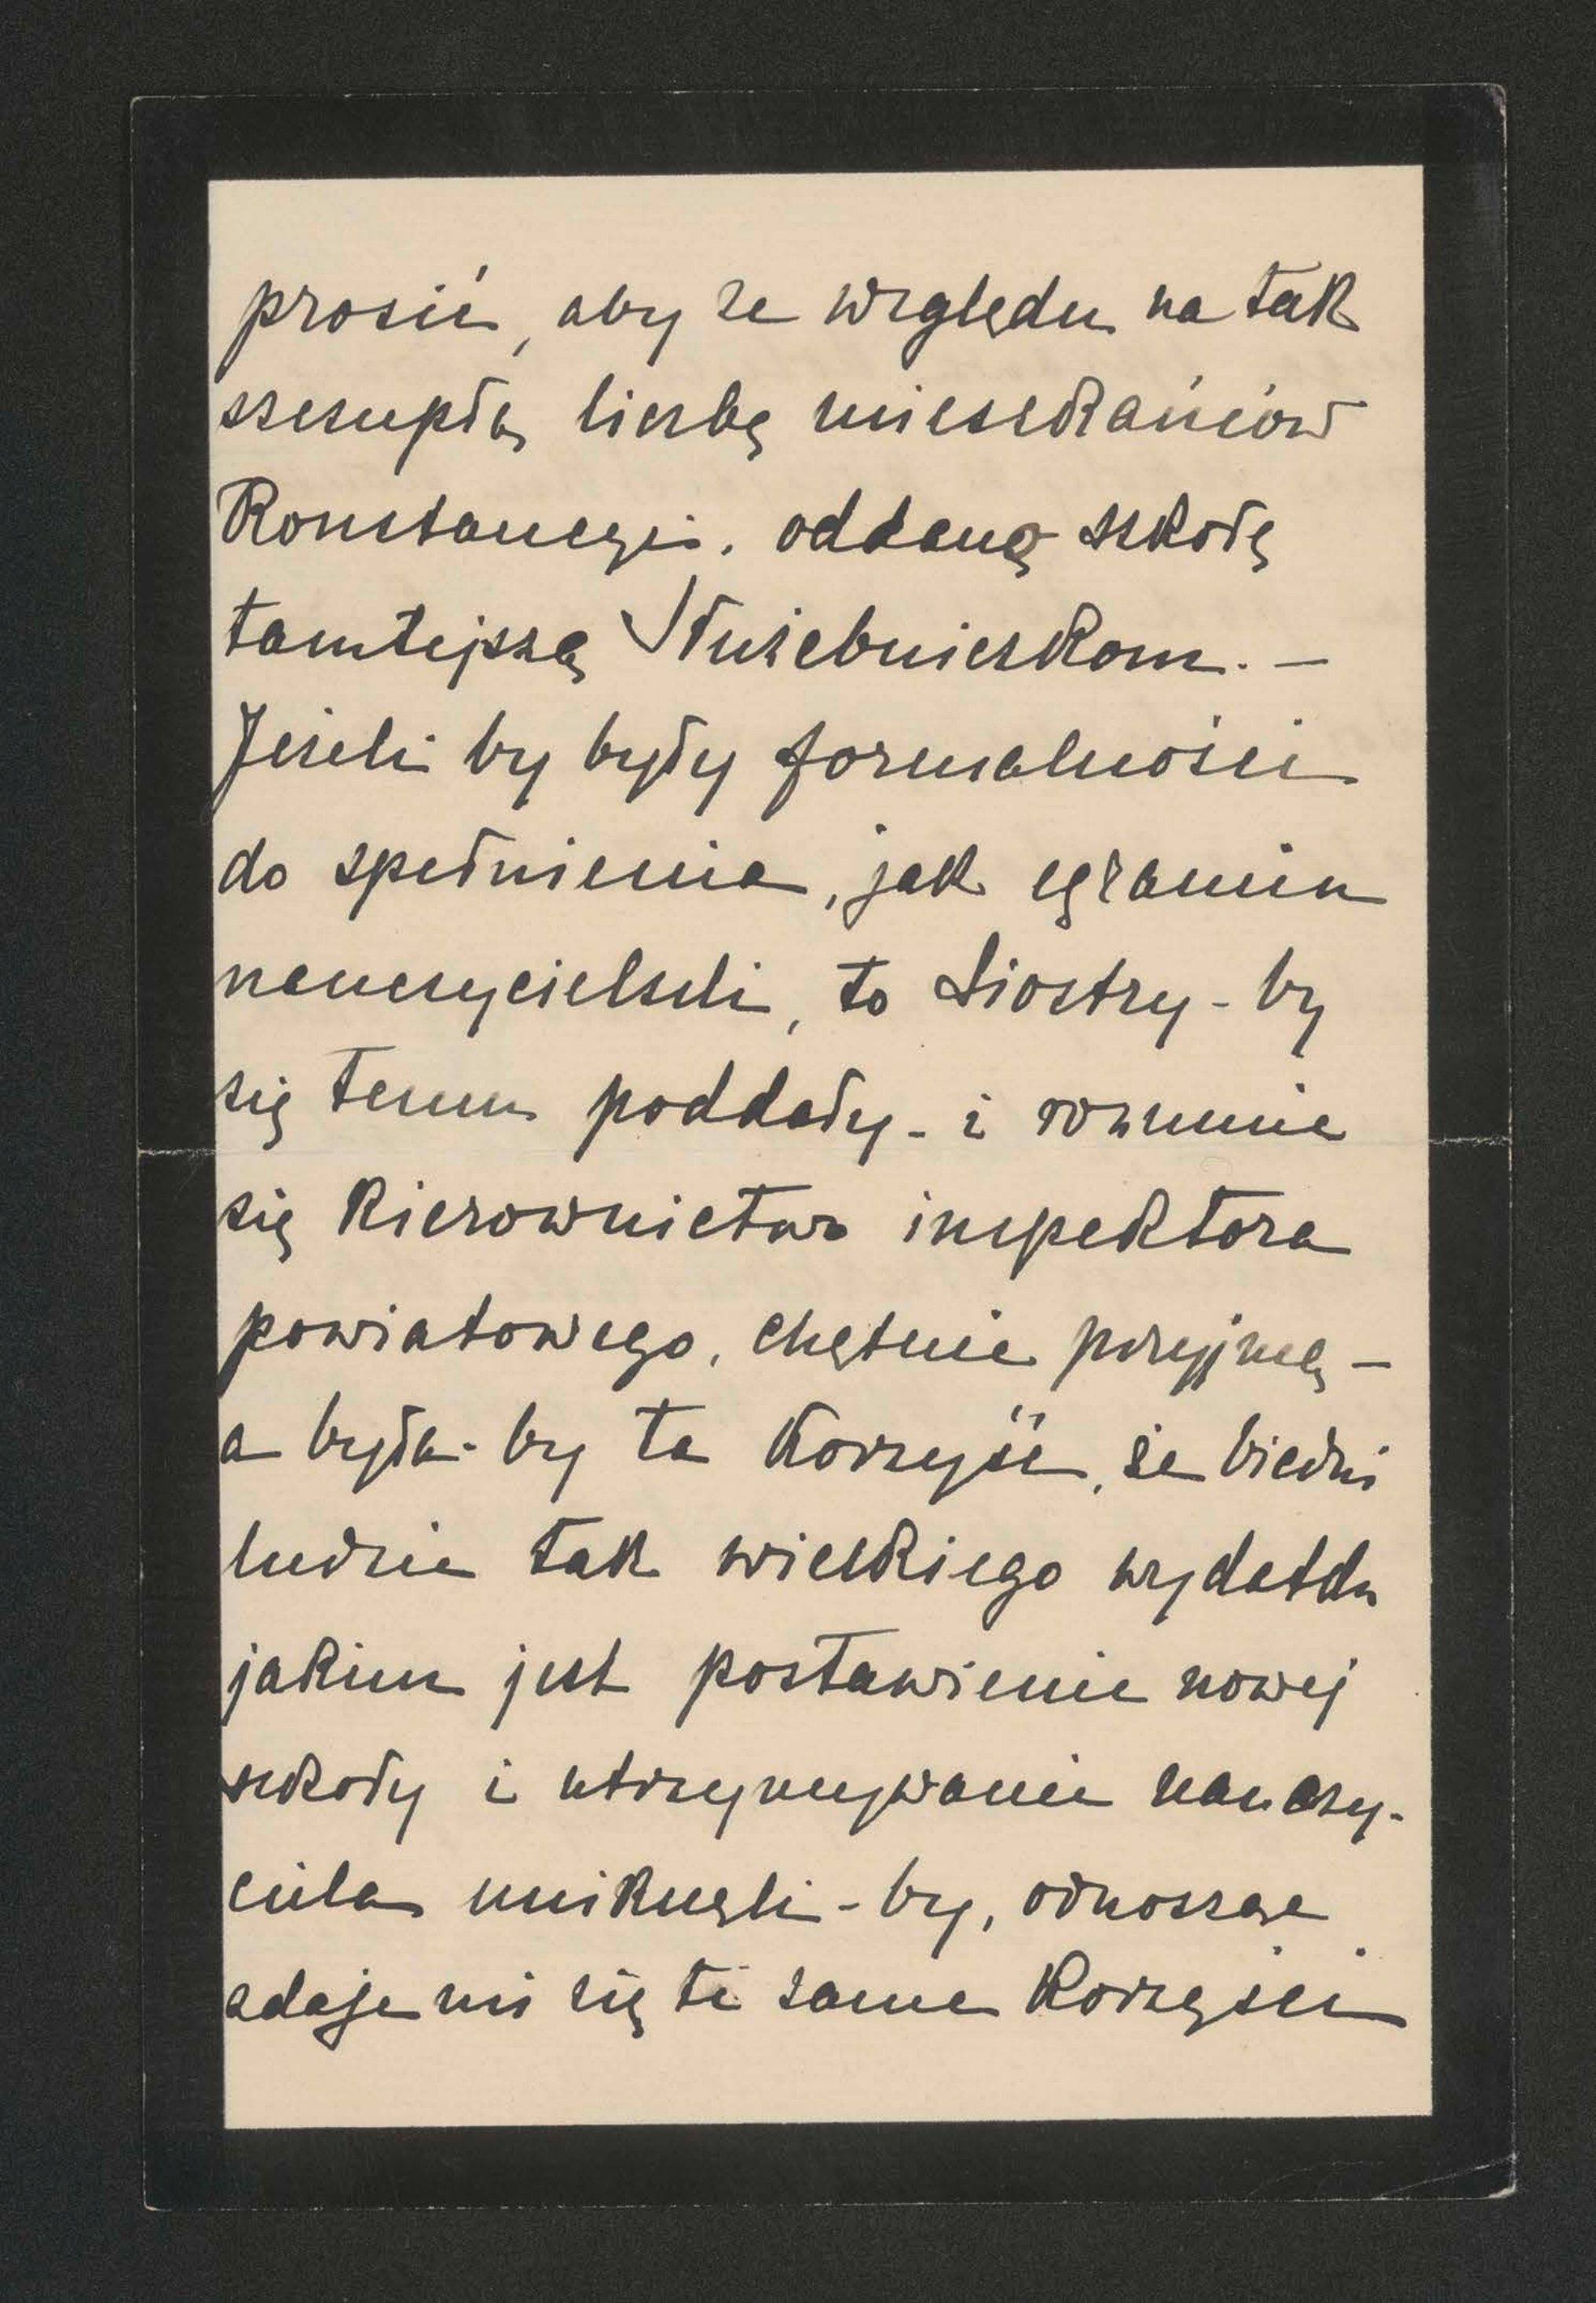 prosić, aby ze względu na tak
szczupłą liczbę mieszkańców
Konstancyi, oddano szkołę
tamtejszą Służebniczkom. –
Jeżeli by były formalności
do spełnienia, jak egzamin
nauczycielski, to Siostry-by
się temu poddały - i rozumie
się kierownictwo inspektora
powiatowego, chętnie przyjmą –
a była-by ta korzyść, że biedni
ludzie tak wielkiego wydatku
jakim jest postawienie nowej
szkoły i utrzymywanie nauczy-
ciela uniknęli-by, odnosząc
zdaje mi się te same korzyści